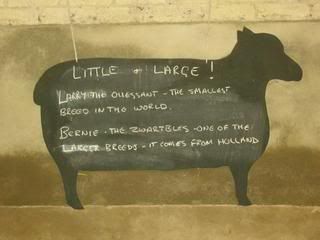 LITTLE & LARGE!
LARRY THE OUESSANT - THE SMALLEST
BREED IN THE WORLD.
BERNIE - THE ZWARTBLES - ONE OF THE
LARGER BREEDS - IT COMES FROM HOLLAND